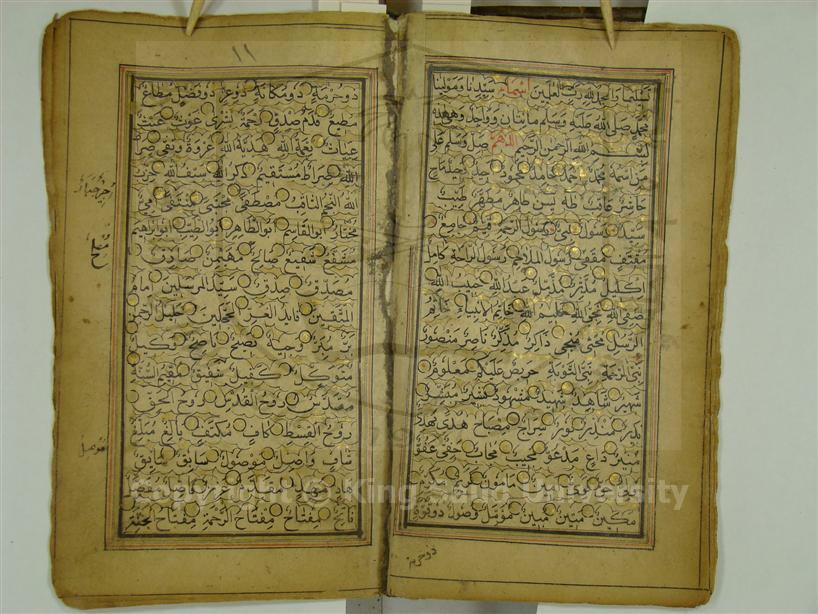 تسليما والحمد لله رب العالمين اسماء سيدنا ومولينا
محمد صلى الله عليه وسلم مائتان وواحد وهى هذه
بسم الله الرحمن الرحيم اللهم صل وسلم على
من اسمه محمد احمد حامد محمود احيد وحيد ماح
حاشر عاقب طه يس طاهر مطهر طيب
سيد رسول نبى رسول الرحمة قيم جامع
مقتف مقفى رسول الملاحم رسول الراحة كامل
اكليل مدثر مزمل عبد الله حبيب الله
صفى الله نجى الله كليم الله خاتم الانبياء خاتم
الرسل محيى منجى مذكر ناصر منصور
نبى الرحمة نبى التوبة حريص عليكم معلوم
شهير شاهد شهيد مشهود بشير مبشر
نذير منذر نور سراج مصباح هدى مهدى
منير داع مدعو مجيب مجاب حفى عفو
مامون كريم مكرم
مكين متين مبين مؤمل وصول ذو قوة
ذو حرمة
١١
ذو حرمة ذو مكانة ذو عز ذو فضل مطاع
مطيع قدم صدق رحمة بشرى غوث غيث
غياث نعمة الله هدية الله عروة وثقى صراط
الله صراط مستقيم ذكر الله سيف الله حزب
الله النجم الثاقب مصطفى مجتبى منتقى امى
مختار ابو القاسم ابو الطاهر ابو الطيب ابو ابراهيم
مشفع شفيع صالح مهيمن صادق
مصدق صدق سيد المرسلين امام
المتقين قايد الغر المحجلين خليل الرحمن
بر مبر وجيه نصيح ناصح وكيل
متوكل كفيل شفيق مقيم السنة
مقدس روح القدس روح الحق
روح القسط كاف مكتف بالغ مبلغ
شاف واصل موصول سابق سائق
هاد مهد
فاتح مفتاح مفتاح الرحمة مفتاح الجنة
Copyright © King Saud University